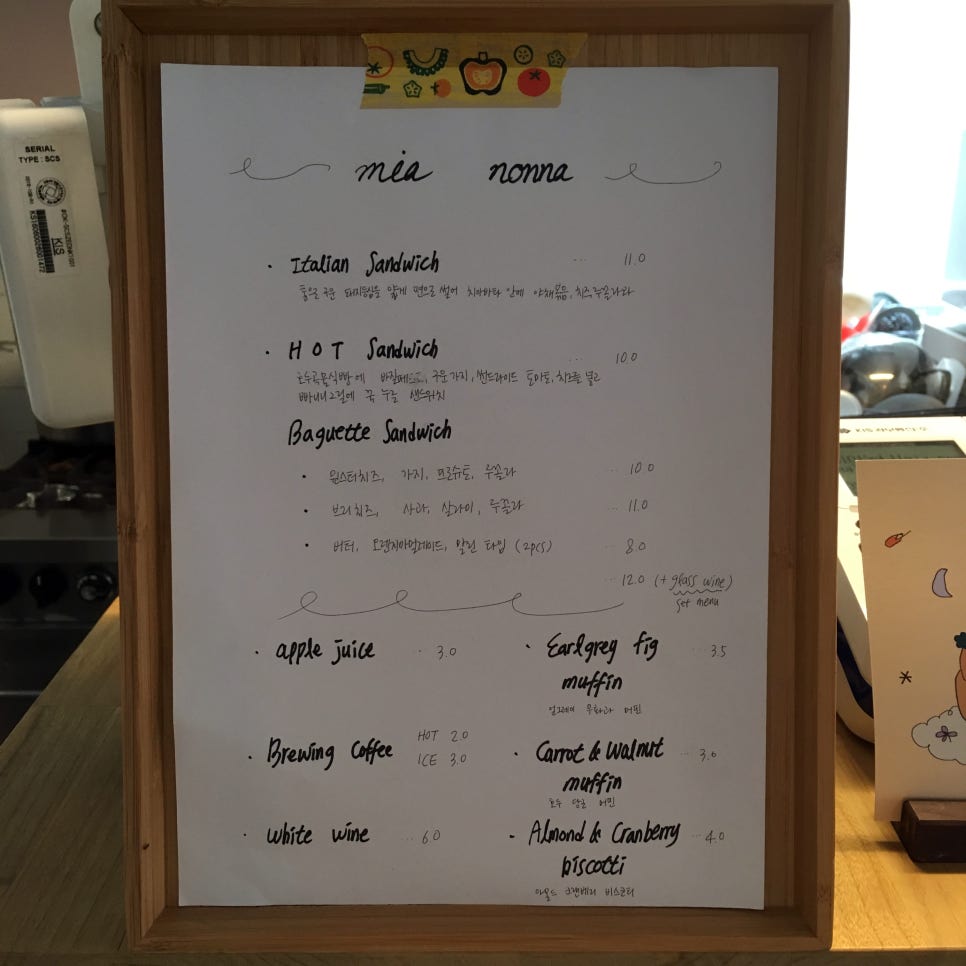 SERIAL
TYPE : SCS
KS
mia nonna
· Italian Sandwich ... 11.0
통으로 구운 돼지등심을 얇게 편으로 썰어 치아바타 안에 야채볶음, 치즈, 루꼴라라
· HOT Sandwich ... 10.0
호두곡물식빵에 바질페스토, 구운가지, 썬드라이드 토마토, 치즈를 넣고
빠니니그릴에 꾹 누른 샌드위치
Baguette Sandwich
· 치즈, 가지, 프로슈토, 루꼴라 ... 10.0
· 브리치즈, 사과, 살라미, 루꼴라 ... 11.0
· 버터, 오렌지마멀레이드, 타입 (2pcs) ... 8.0
... 12.0 (+ glass wine)
set menu
· apple juice ... 3.0
· Earlgrey fig ... 3.5
muffin
얼그레이 무화과 머핀
· Brewing Coffee HOT 2.0
ICE 3.0
· Carrot & Walnut ... 3.0
muffin
호두 당근 머핀
· white wine ... 6.0
· Almond & Cranberry ... 4.0
biscotti
아몬드 크랜베리 비스코티